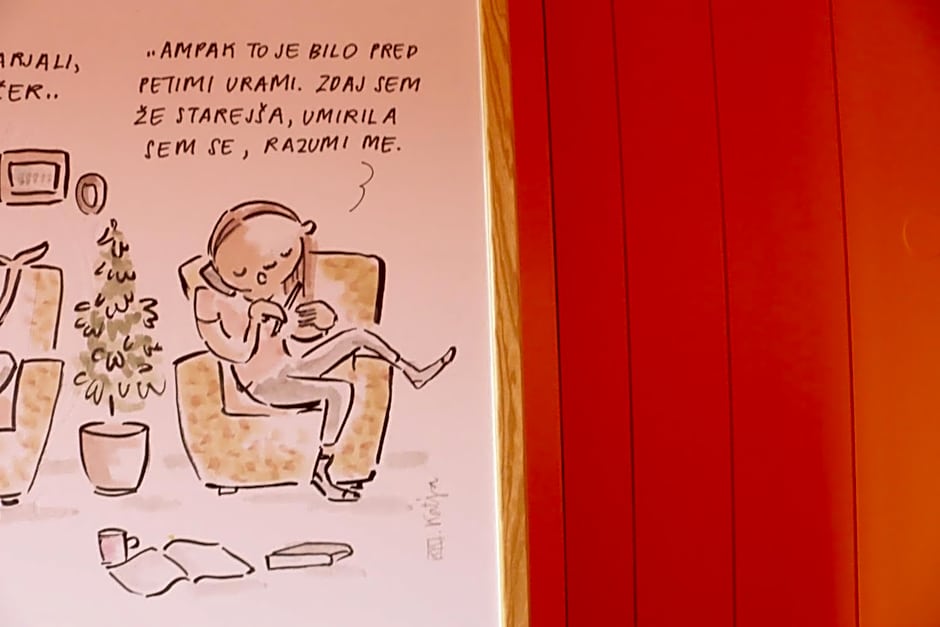 ARJALI,
ČER..
.. AMPAK TO JE BILO PRED
PETIMI URAMI. ZDAJ SEM
ŽE STAREJŠA, UMIRILA
SEM SE, RAZUMI ME.